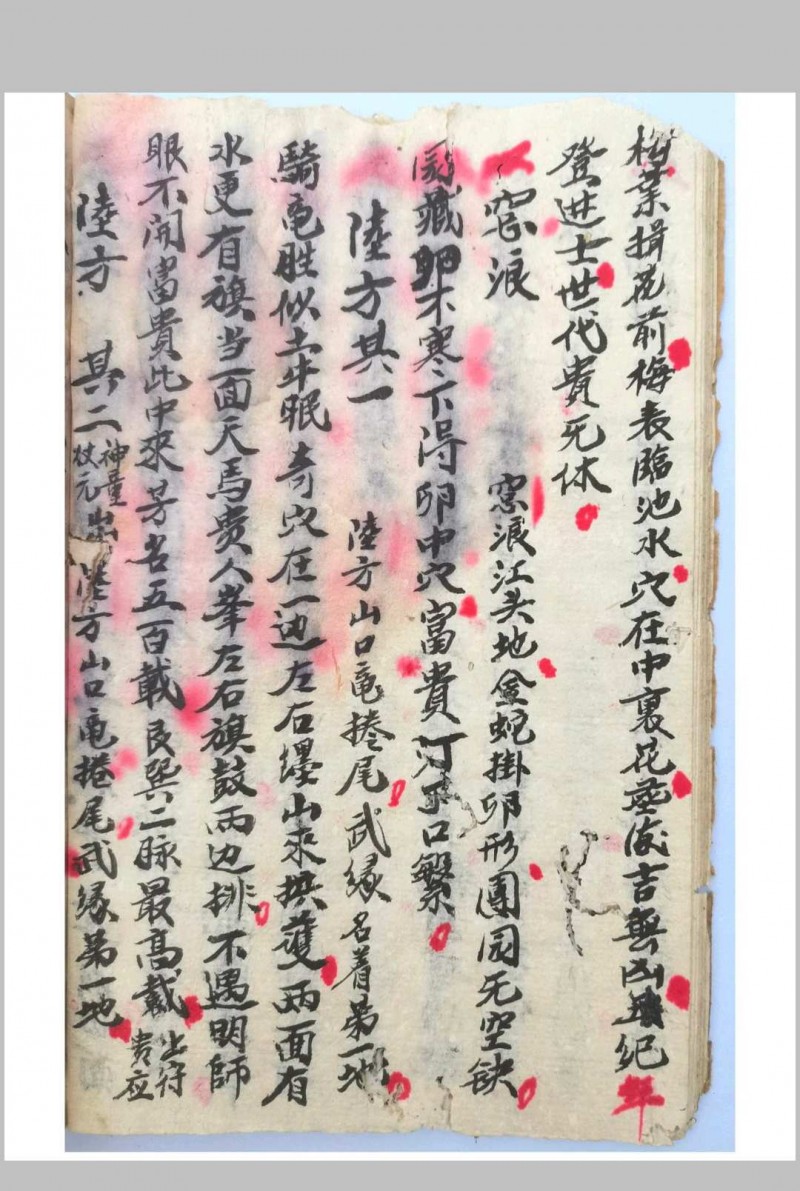 梅葉揖花前梅表臨池水穴在中裏花蕊後吉無凶 紀年
登进士世代贵无休
窓浪 窓浪江头地金蛇掛卵形團园无空缺
藏卵不寒下得卵中穴富貴 口繁
陸方其一 陸方山口竜捲尾武緣名着第一地
騎竜胜似土牛眠奇穴在一边左右纒山來拱護两面有
水更有旗当面天馬贵人峯左右旗鼓两边排不遇明師
眼不開富貴此中來芳名五百載艮巽二脉最高戴 贵应
陸方 其二 神童 出陸方山口竜捲尾武缘第一地